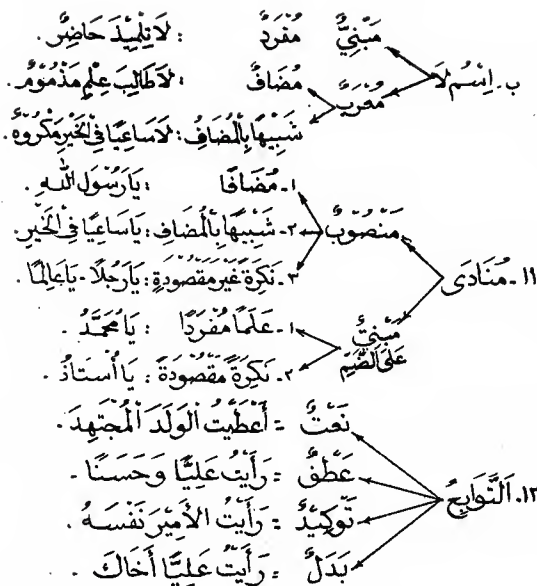 مَبْنِيٌّ مُفْرَدٌ : لَا تِلْمِيْذَ حَاضِرٌ.
ب. اِسْمُ لَا مُعْرَبٌ مُضَافٌ : لَا طَالِبَ عِلْمٍ مَذْمُوْمٌ.
شَبِيْهًا بِالْمُضَافِ : لَا سَاعِيًا فِى الْخَيْرِ مَكْرُوْهٌ.
١- مُضَافًا : يَا رَسُوْلَ اللهِ.
مَنْصُوْبٌ ٢- شَبِيْهًا بِالْمُضَافِ : يَا سَاعِيًا فِى الْخَيْرِ.
٣- نَكِرَةً غَيْرَ مَقْصُوْدَةٍ : يَا رَجُلًا - يَا عَالِمًا.
١١- مُنَادَى
مَبْنِيٌّ عَلَى الضَّمِّ ١- عَلَمًا مُفْرَدًا : يَا مُحَمَّدُ.
٢- نَكِرَةً مَقْصُوْدَةً : يَا أُسْتَاذُ.
نَعْتٌ = أَعْطَيْتُ الْوَلَدَ الْمُجْتَهِدَ.
عَطْفٌ = رَأَيْتُ عَلِيًّا وَحَسَنًا -
١٢- اَلتَّوَابِعُ
تَوْكِيْدٌ = رَأَيْتُ الْأَمِيْرَ نَفْسَهُ.
بَدَلٌ = رَأَيْتُ عَلِيًّا أَخَاكَ.